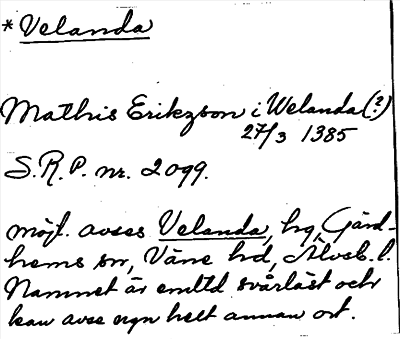 * Velanda
Mathis Erikzson i Welanda (?)
27/3 1385
S.R.P. nr. 2099.
möjl. avses Velanda, hg, Gärd-
hems sn, Väne hd, Älvsb. l.
Namnet är emltd svårläst och
kan avse ngn helt annan ort.